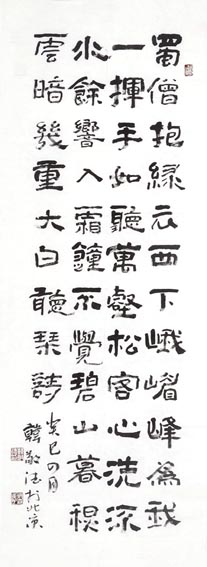 蜀僧抱綠西下峨嵋峰為我
一揮手如聽萬壑松客心洗流
水餘響入霜鐘不覺碧山暮秋
雲暗幾重大白聽琴詩
癸巳四月
韓敬於北京